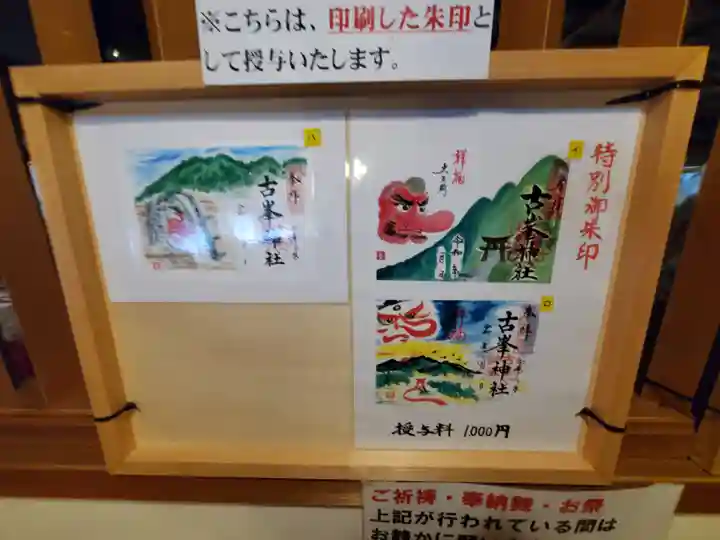 ※こちらは、印刷した朱印と
して授与いたします。
特別御朱印
ハ
奉拝
古峯神社
イ
祥福
古峯神社
令和 年
ロ
奉拝
古峯神社
授与料 1,000円
ご祈祷・奉納鏡・お祭
上記が行われている間は